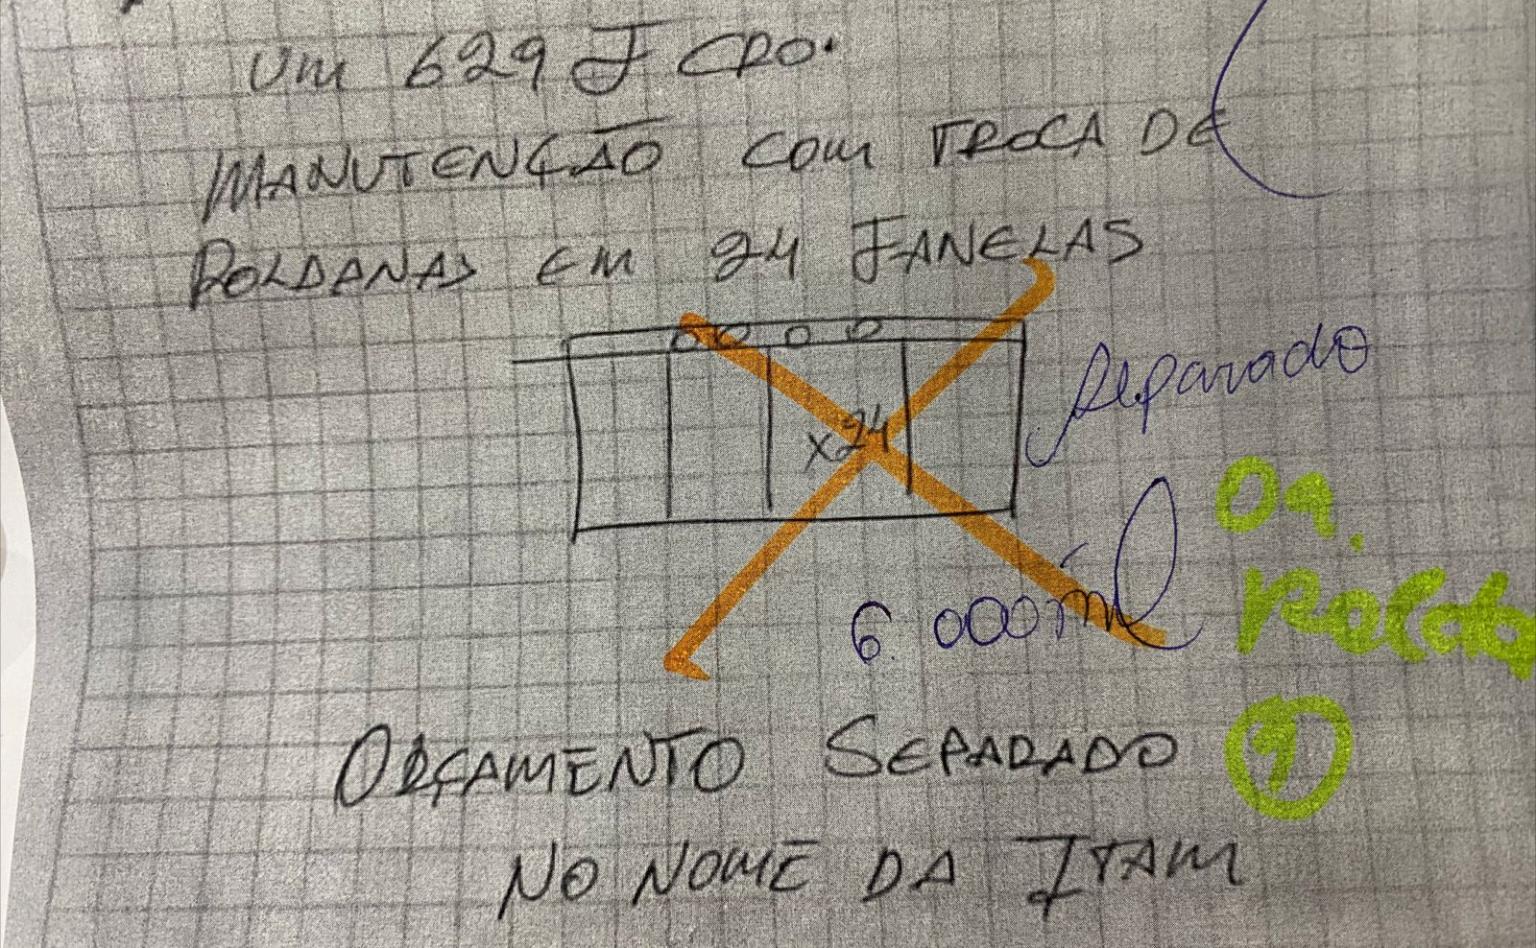 Um 629 J CRO.
MANUTENÇÃO COM TROCA DE
ROLDANAS EM 24 JANELAS
x24
Separado
6.000 mil
ORÇAMENTO SEPARADO
NO NOME DA ITAM